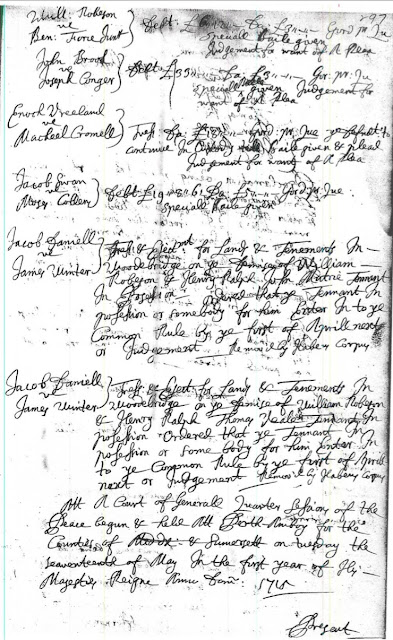 297
Will: Robeson
vs
Ben: Force Junr
Debt: Da: Gord pr: Ju
Speciall Baile given
Judgement for want of A Plea
John Brook
vs
Joseph Conger
Debt: £35 Da: £5 Gor: pr: Ju
Speciall Baile given Judgement for
want of A Plea
Enoch Vreeland
vs
Macheal Cromell
Tress Da: £18 Gord: pr: Jua ye Defendt to
continue In Custody till Baile given & plead
Judgement for want of A Plea
Jacob Swan
vs
Moses Collen
Debt £19 Da: £5 Gord pr Jue
Speciall Baile given
Jacob Daniell
vs
James Winter
Tress & Ejectmt for Land & Tenements In
Woodbridge on ye Demise of William
Robeson & Henry Ralph John Tennant
In Possesion Ordered that ye Tennant In
possession or somebody for him Enter In to ye
Common Rule by ye first of Aprill next
or Judgement Remov'd by Habeas Corpus
Jacob Daniell
vs
James Winter
Tress & Eject for Land & Tenements In
Woodbridge on ye Demise of William Robeson
& Henry Ralph Thomas Tennant In
possession Ordered that ye Tennant In
possession or some body for him Enter In
to ye Common Rule By ye first of Aprill
next or Judgement Remov'd by Habeas Corpus
Att A Court of Generall Quarter Sessions off the
Peace begun & held Att Perth Amboy for the
Counties of Middx: & Sumersett on tuesday the
seaventeenth of May In the first year of His
Majesties Reigne Annu Dom: 1715
Present